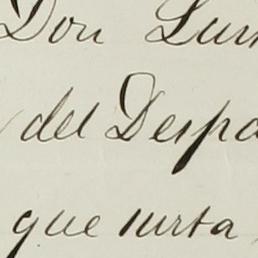 Don Luis
del Despa
que surta